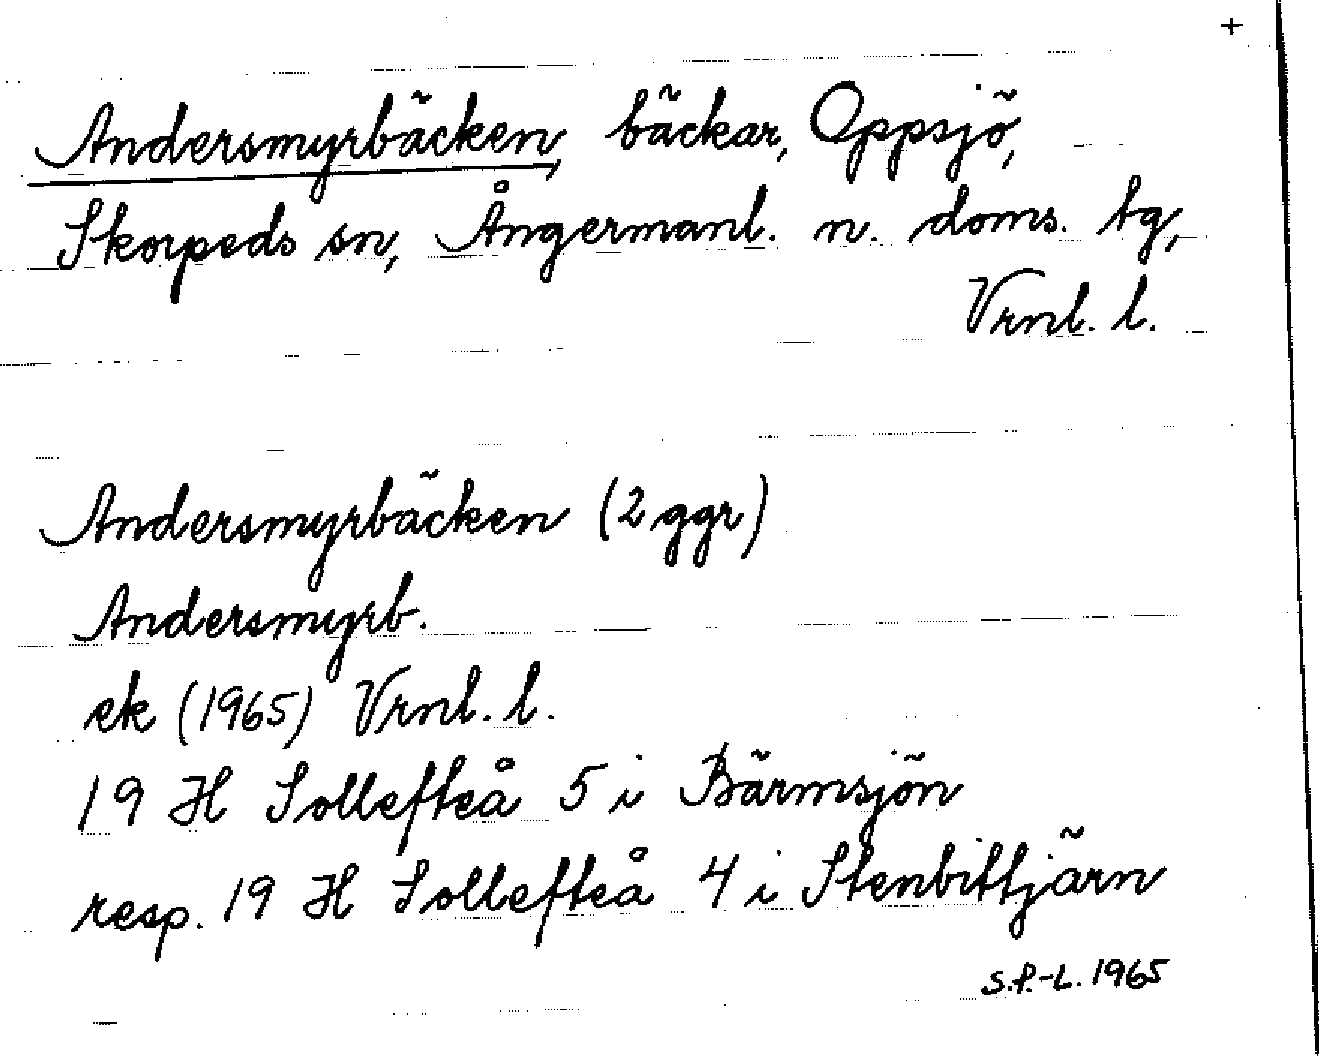 +
Andersmyrbäcken, bäckar, Oppsjö,
Skorpeds sn, Ångermanl. n. doms. tg,
Vrnl. l.
Andersmyrbäcken (2 ggr)
Andersmyrb.
ek (1965) Vrnl. l.
19 H Sollefteå 5 i Bärmsjön
resp. 19 H Sollefteå 4 i Stenbittjärn
S.P.-L. 1965